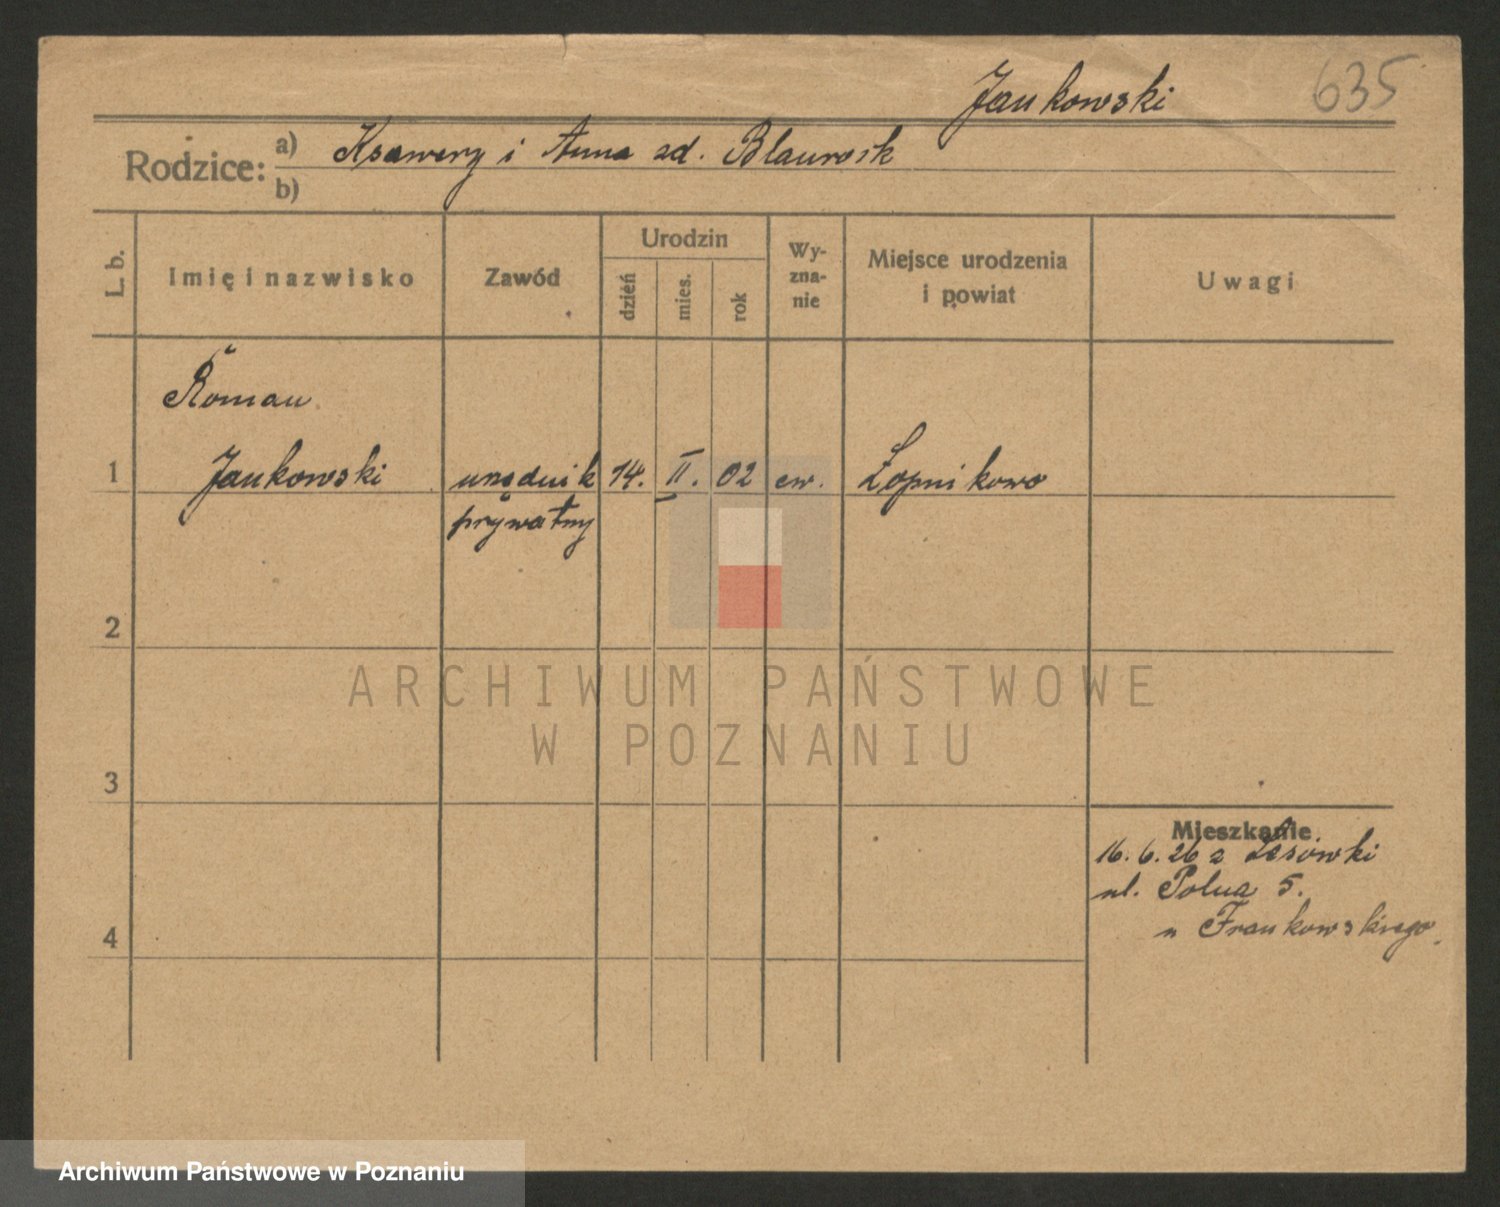 635
Jankowski
Rodzice: a) Ksawery i Anna zd.
b)
L. b.
Imię i nazwisko
Zawód
Urodzin
dzień
mies.
rok
Wy-
zna-
nie
Miejsce urodzenia
i powiat
Uwagi
Roman
1 Jankowski urzędnik 14. II. 02 ew. Łopnikowo
prywatny
2
3
4
Mieszkanie
16. 6. 26 z
ul. Polna 5.
u Frankowskiego
ARCHIWUM PAŃSTWOWE
W POZNANIU
Archiwum Państwowe w Poznaniu